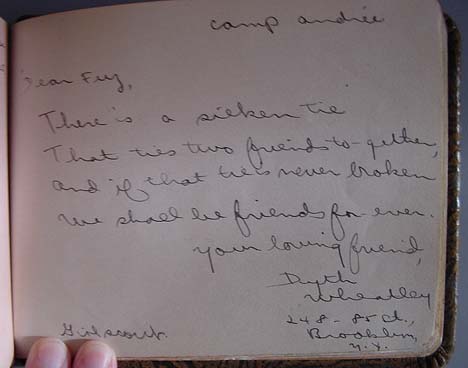 camp andrée
Dear Fry,
There is a silken tie
That ties two friends to-gether,
and if that tie is never broken
We shall be friends for ever.
your loving friend,
Wheatley
248-85 st.,
Brooklyn,
n.y.
Girl scout.